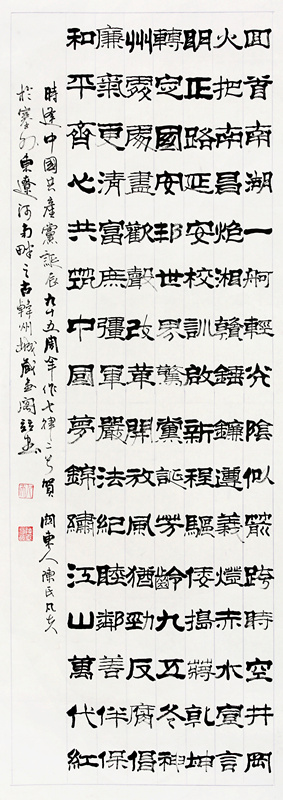 回首南湖一舸輕光陰似箭跨時空井岡
火把南昌炮湘贛錘鐮遵義燈赤水宣言
明正路延安校訓啟新程驅倭搗蔣乾坤
轉定國安邦世界驚黨誕芳齡九五冬神
州處處盡歡聲改革開放風猶勁反腐倡
廉氣更清富庶疆軍嚴法紀睦鄰善伴保
和平齊心共筑中國夢錦繡江山萬代紅
時逢中國共產黨誕辰九十五周年作七律二首賀 關東人陳民凡
於塞外東遼河右畔之古韓州城藏壺閣